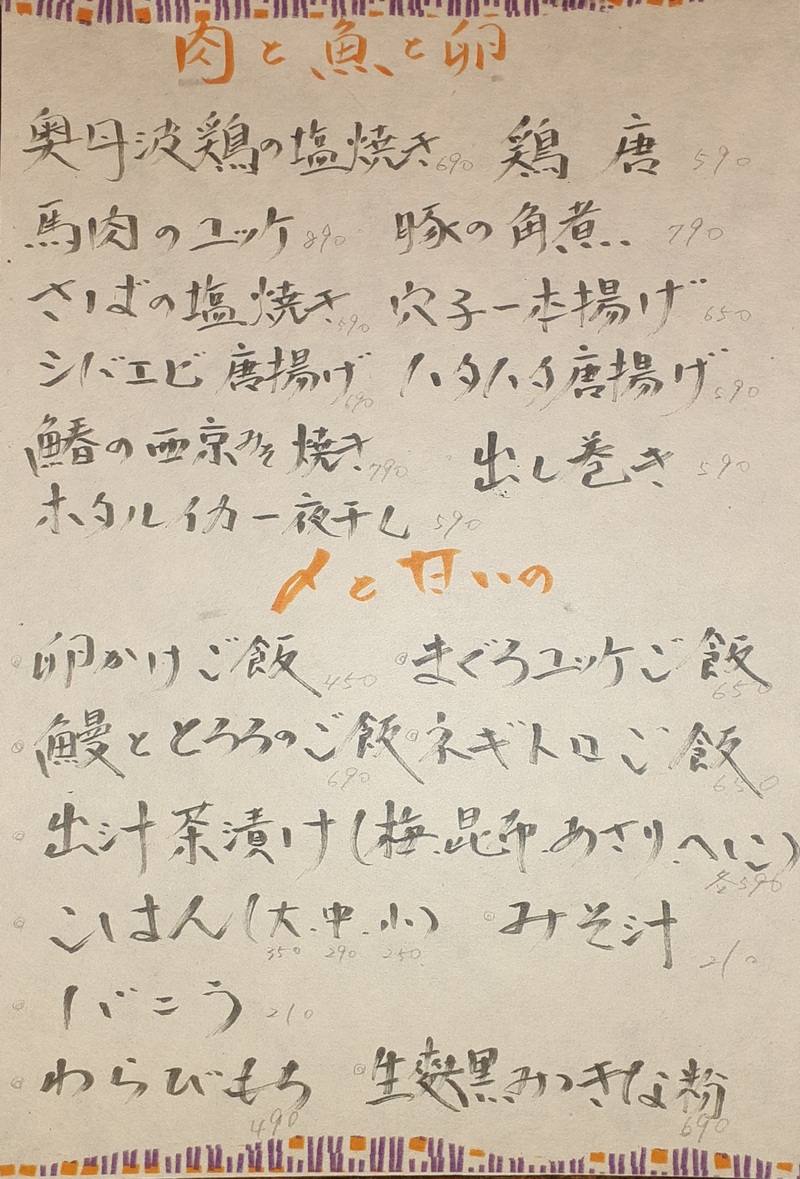 肉と魚と卵
奥丹波鶏の塩焼き690 鶏唐590
馬肉のユッケ890 豚の角煮790
さばの塩焼き590 穴子一本揚げ650
シバエビ唐揚げ690 ハタハタ唐揚げ590
鰆の西京みそ焼き790 出し巻き590
ホタルイカ一夜干し590
〆と甘いの
卵かけご飯450 まぐろユッケご飯650
鰻ととろろのご飯690 ネギトロご飯650
出汁茶漬け(梅、昆布、あさり、へしこ)各590
ごはん(大、中、小)350 290 250 みそ汁210
しばこう210
わらびもち490 生麩黒みつきな粉690